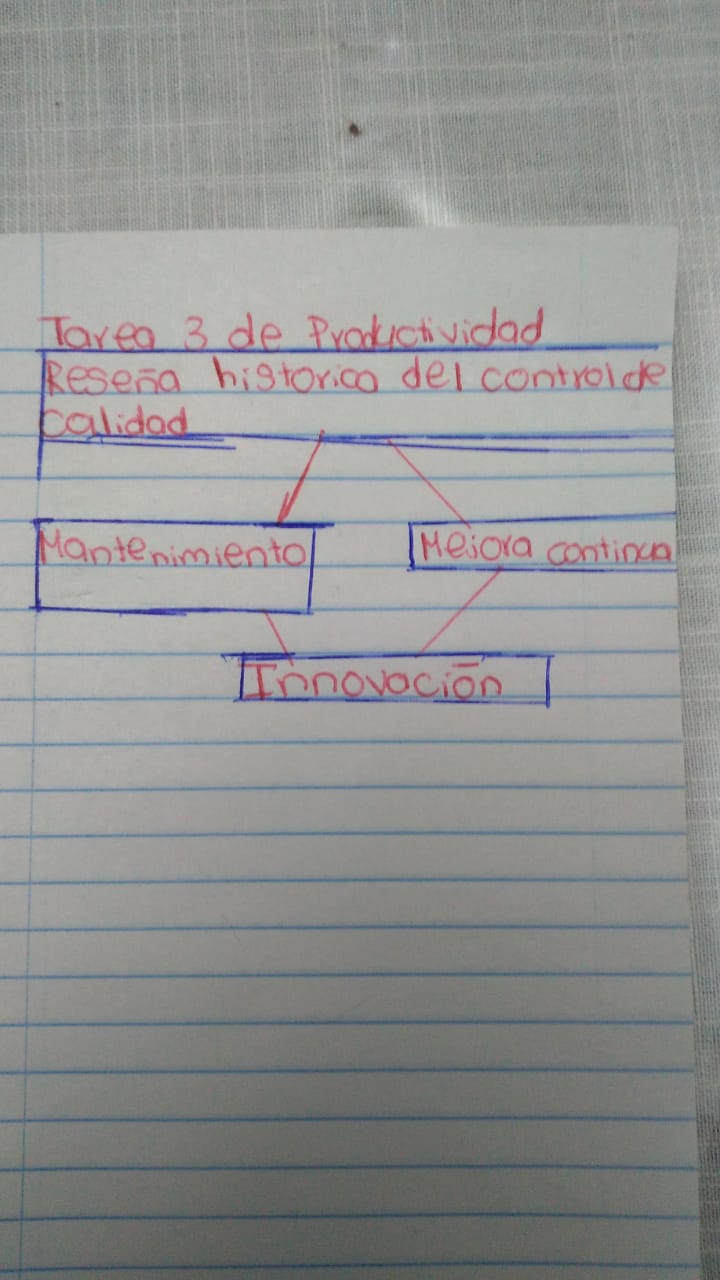 Tarea 3 de Productividad
Reseña historica del control de
calidad
Mantenimiento
Mejora continua
Innovación